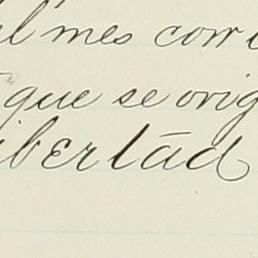 el mes corri
que se orig
ibertad